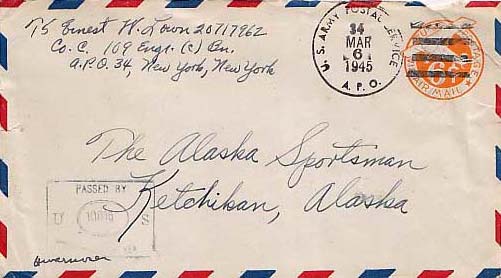 T/5 Ernest W. Town 20717962
Co. C. 109 Engr. (c) Bn.
A.P.O. 34, New York, New York
U.S. ARMY POSTAL SERVICE
34
MAR
6
1945
A. P. O.
6¢
AIR MAIL
The Alaska Sportsman
Ketchikan, Alaska
PASSED BY